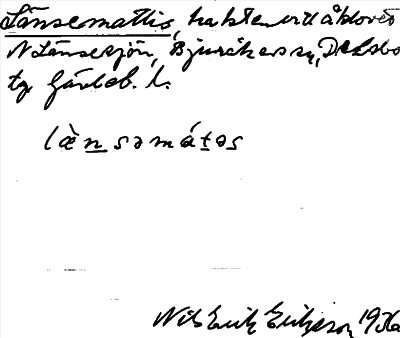 Länsemattis, trakten vid åkloven
N Länsesjön, Bjuråkers sn, Delsbo
tg Gävleb. l.
læ̀nsəmátəs
Nils Erik Eriksson 1936